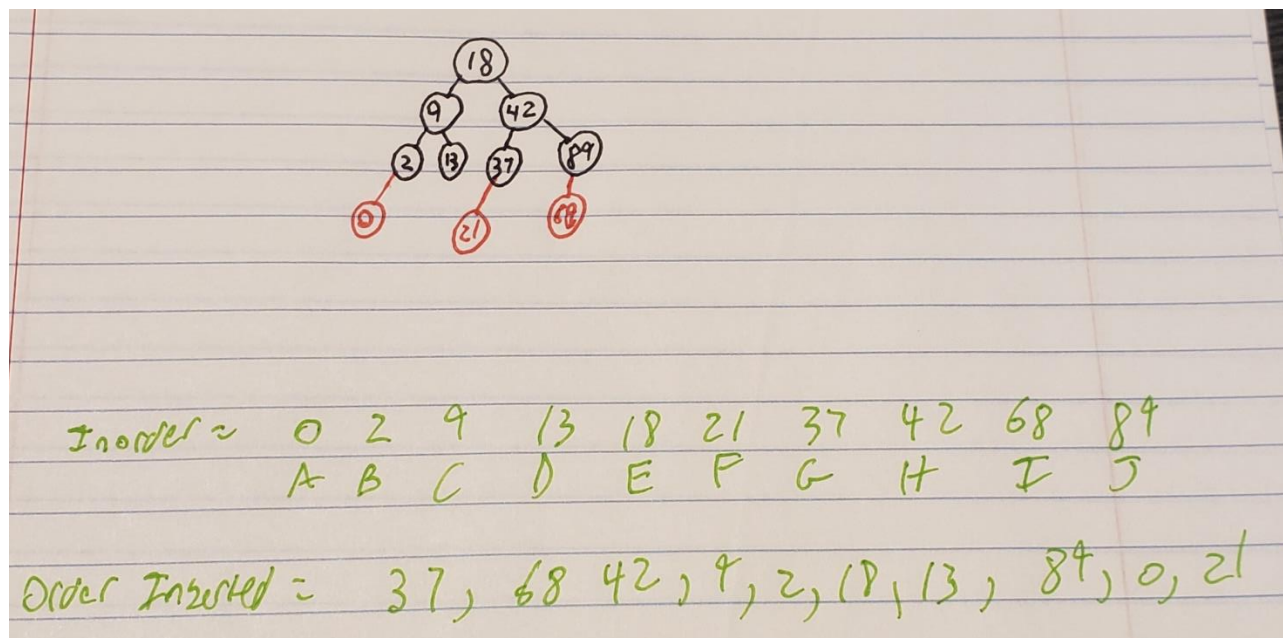 18
9 42
2 13 37 89
0 21 68
Inorder = 0 2 9 13 18 21 37 42 68 89
A B C D E F G H I J
Order Inserted = 37, 68 42, 9, 2, 18, 13, 89, 0, 21